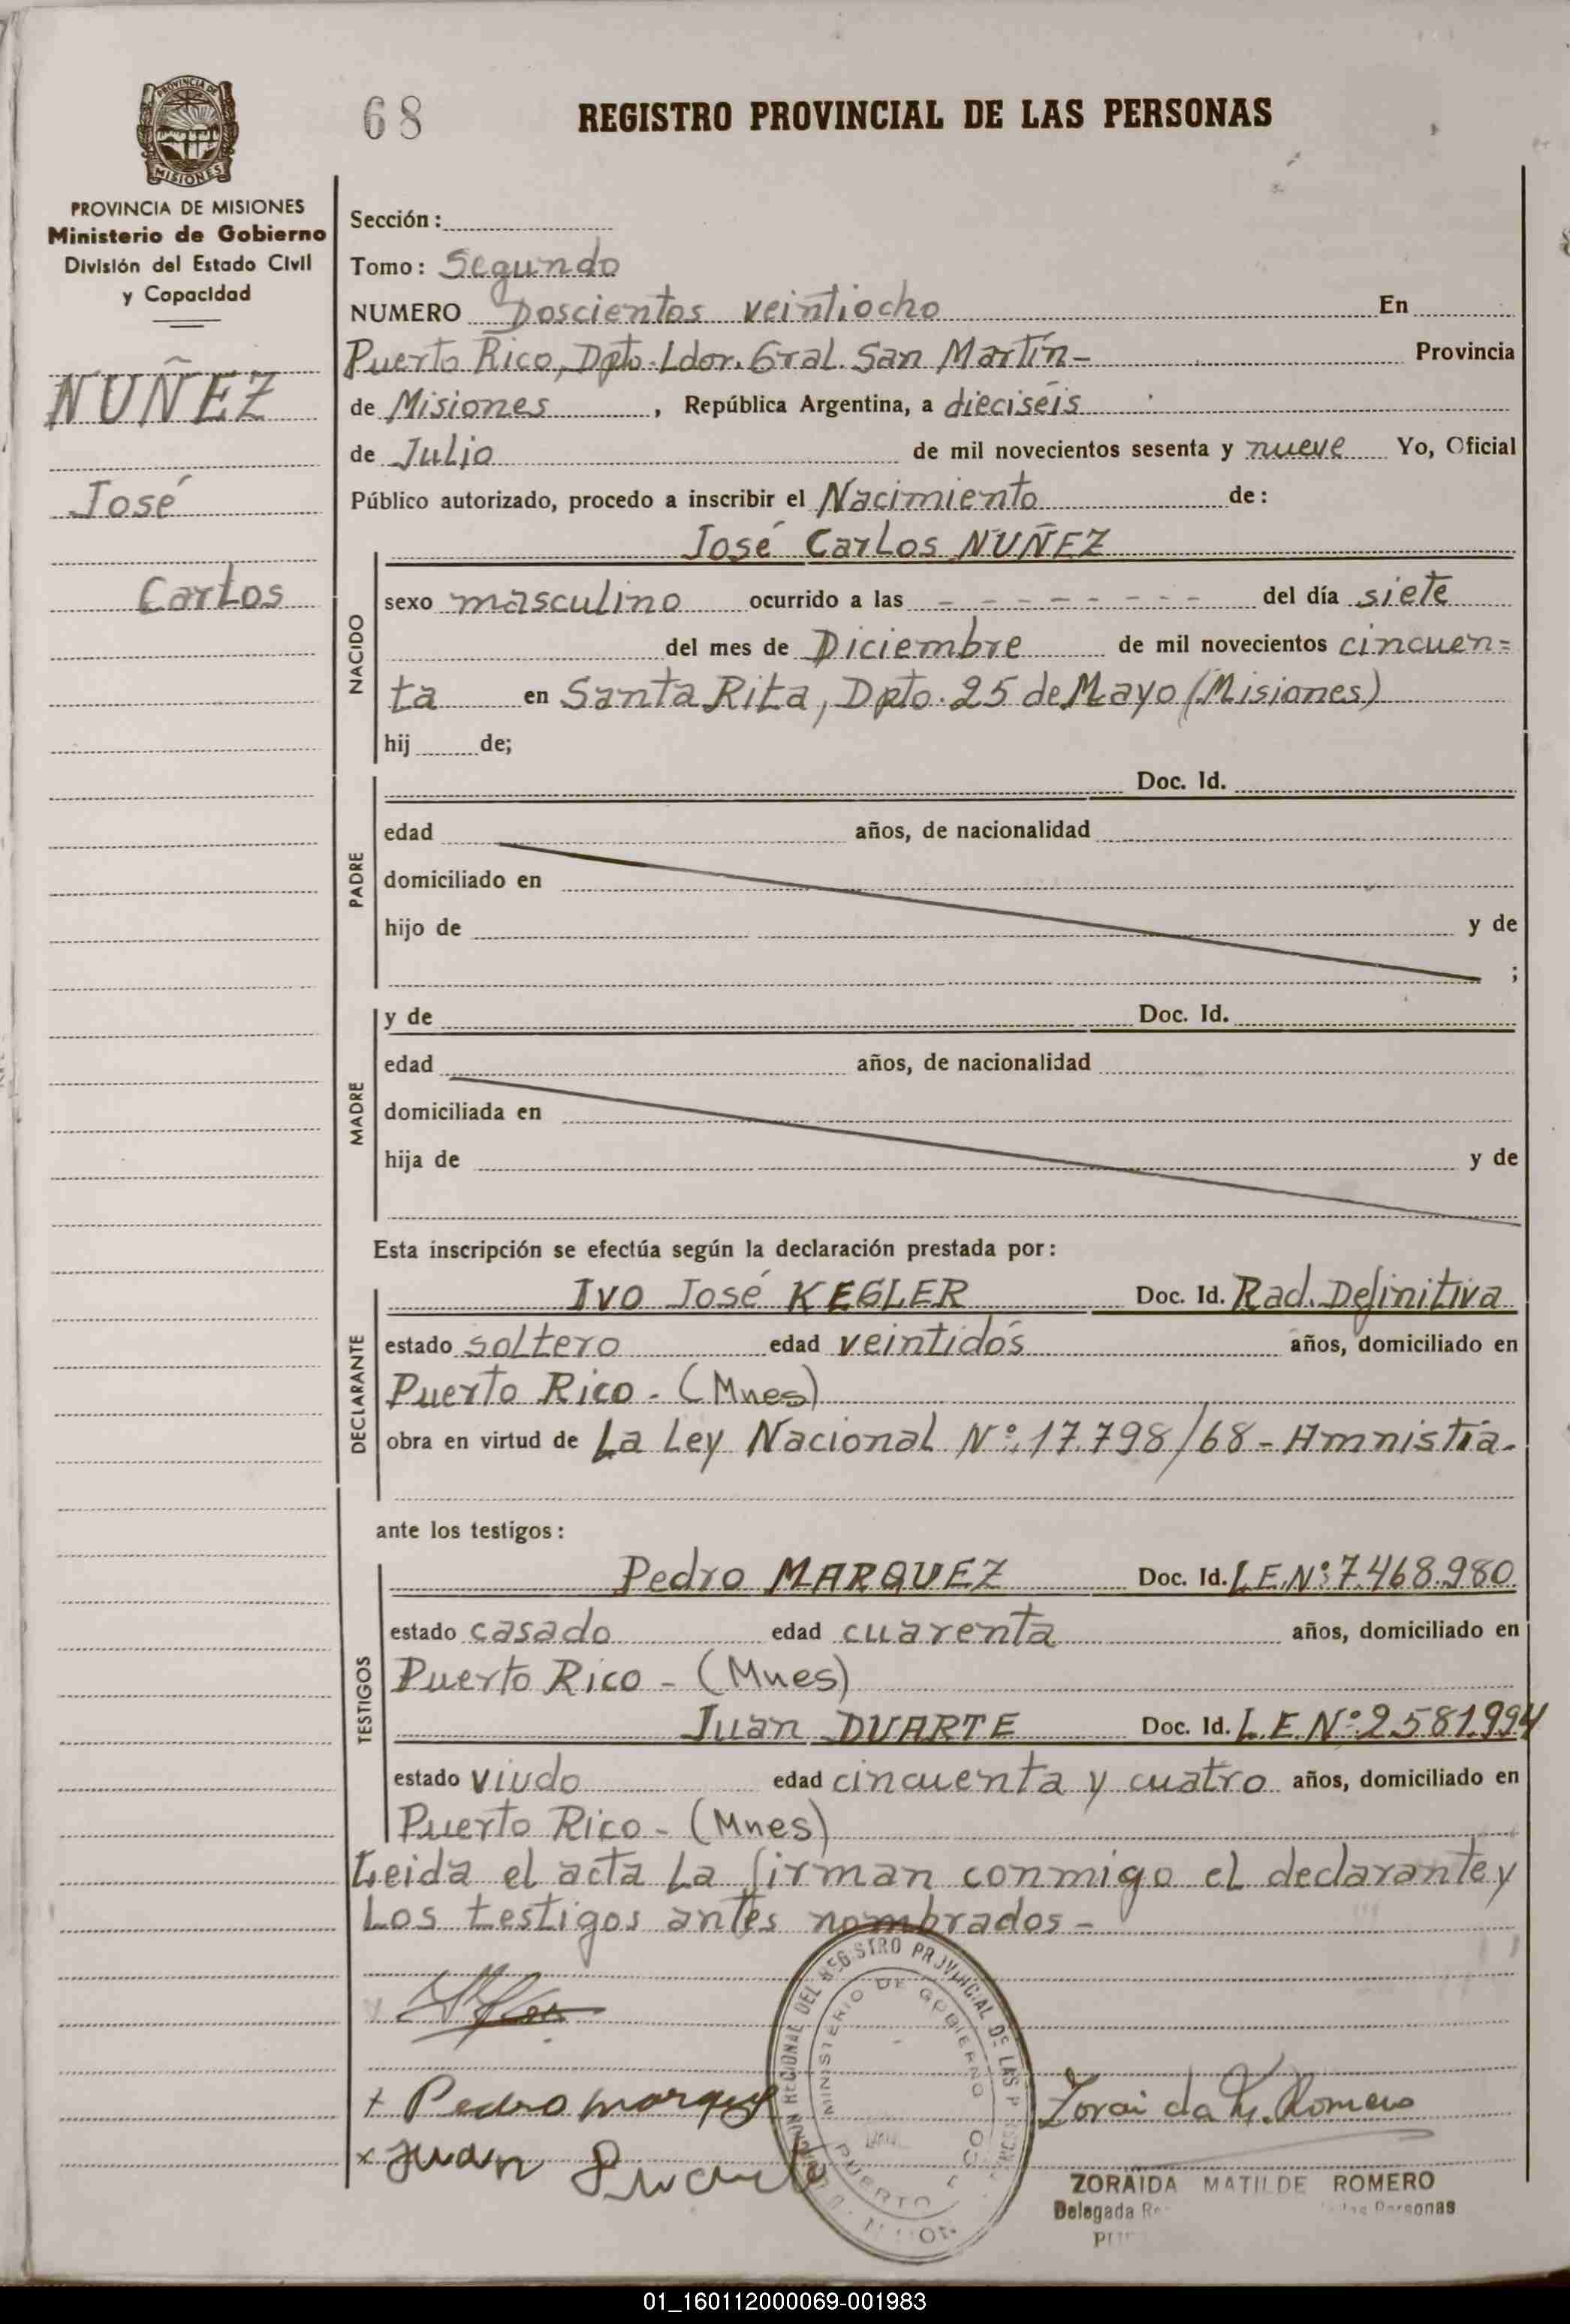 PROVINCIA DE
MISIONES
68
REGISTRO PROVINCIAL DE LAS PERSONAS
PROVINCIA DE MISIONES
Ministerio de Gobierno
División del Estado Civil
y Capacidad
NUÑEZ
José
Carlos
Sección:
Tomo: Segundo
NUMERO Doscientos veintiocho En
Puerto Rico, Dpto. Ldor. Gral. San Martín- Provincia
de Misiones, República Argentina, a dieciséis
de Julio de mil novecientos sesenta y nueve Yo, Oficial
Público autorizado, procedo a inscribir el Nacimiento de:
José Carlos NUÑEZ
NACIDO
sexo masculino ocurrido a las - - - - - - - - del día siete
del mes de Diciembre de mil novecientos cincuen=
ta en Santa Rita, Dpto. 25 de Mayo (Misiones)
hij de;
PADRE
Doc. Id.
edad años, de nacionalidad
domiciliado en
hijo de y de
;
MADRE
y de Doc. Id.
edad años, de nacionalidad
domiciliada en
hija de y de
Esta inscripción se efectúa según la declaración prestada por:
DECLARANTE
Ivo José KEGLER Doc. Id. Rad. Definitiva
estado soltero edad veintidós años, domiciliado en
Puerto Rico - (Mnes)
obra en virtud de La Ley Nacional Nº 17.798/68 - Amnistía.
ante los testigos:
TESTIGOS
Pedro MARQUEZ Doc. Id. L.E.Nº 7.468.980
estado casado edad cuarenta años, domiciliado en
Puerto Rico - (Mnes)
Juan DUARTE Doc. Id. L.E.Nº 2.581.994
estado viudo edad cincuenta y cuatro años, domiciliado en
Puerto Rico - (Mnes)
Leida el acta la firman conmigo el declarante y
los testigos antes nombrados -
REGIONAL DEL REGISTRO PROVINCIAL DE LAS
MINISTERIO DE GOBIERNO
PUERTO
x Pedro Marquez
Zoraida M. Romero
x Juan Duarte
ZORAIDA MATILDE ROMERO
Delegada Personas
01_160112000069-001983